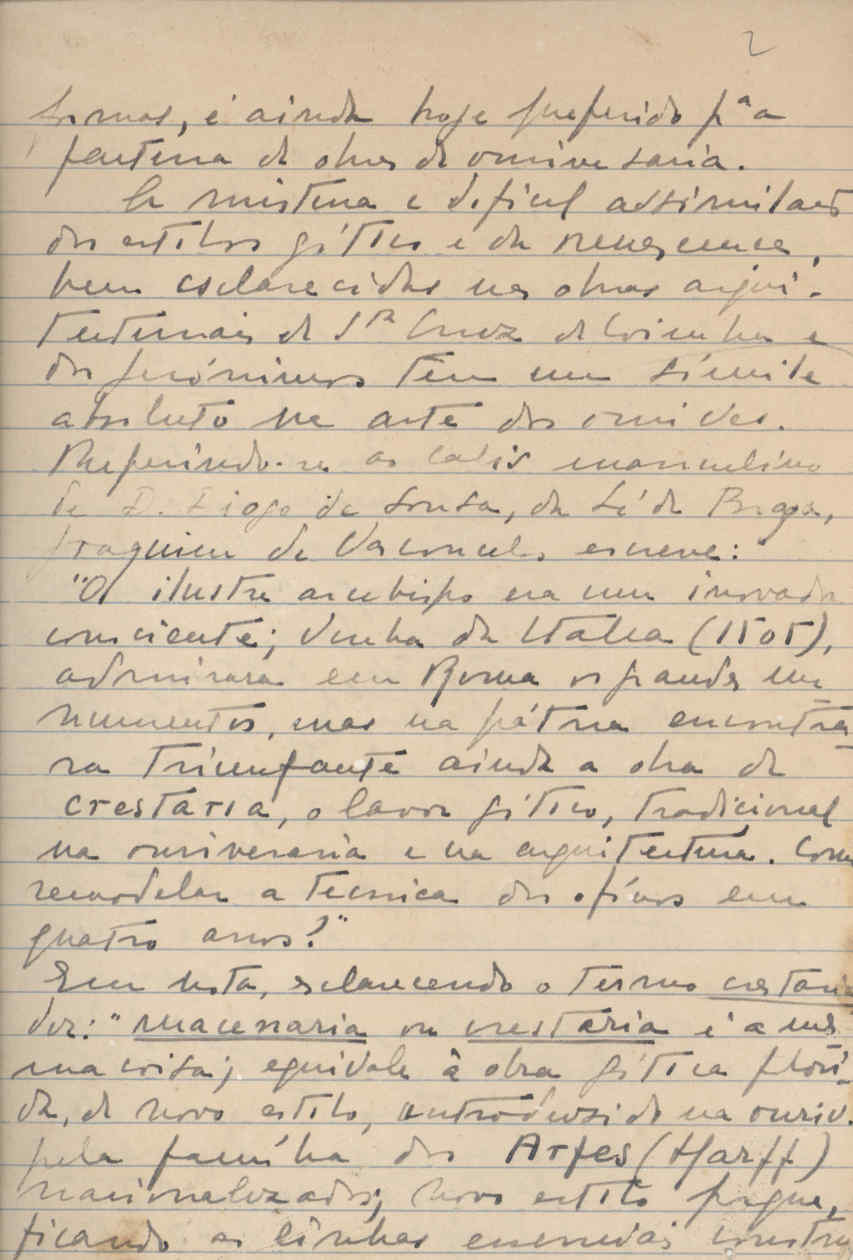 2
formas, é ainda hoje preferido pª a
feitura de obras de ourivesaria.
A mistura e difícil assimilação
dos estilos gótico e da renascença,
bem esclarecidas nas obras arqui-
tectonicas de Stª Cruz de Coimbra e
dos Jerónimos tem um símile
absoluto na arte dos ourives.
Referindo-se ao calis manuelino
de D. Diogo de Sousa, da Sé de Braga,
Joaquim de Vasconcelos escreve:
"O ilustre arcebispo era um inovador
consciente; vinha da Italia (1505),
admirara em Roma os grandes mo-
numentos, mas na pátria encontrá-
ra triunfante ainda a obra de
crestaria, o lavor gótico, tradicional
na ourivesaria e na arquitectura. Como
remodelar a tecnica dos ofícios em
quatro anos?"
Em nota, esclarecendo o termo crestaria
diz: "macenaria ou crestaria é a mes-
ma coisa; equivale á obra gótica flori-
da, de novo estilo, introduzido na ouriv.
pela família dos Arfes (Harff)
nacionalizados; novo estilo
ficando as linhas essenciais